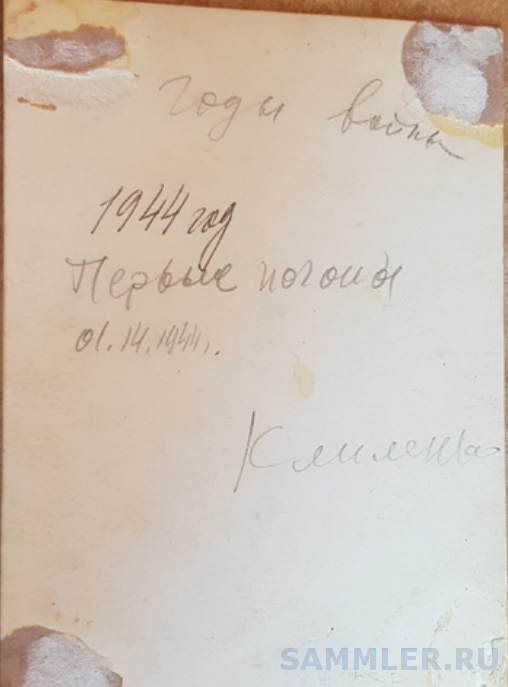 Годы войны
1944 год
Первые погоны
01.14.1944г.
SAMMLER.RU